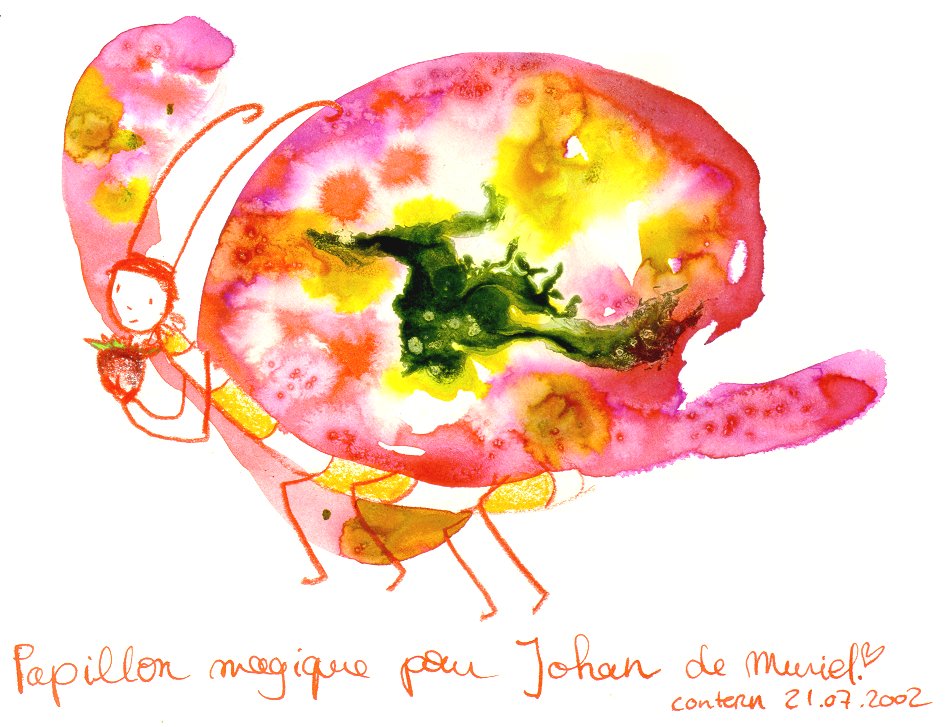 Papillon magique pour Johan de Muriel.♡
contern 21.07.2002